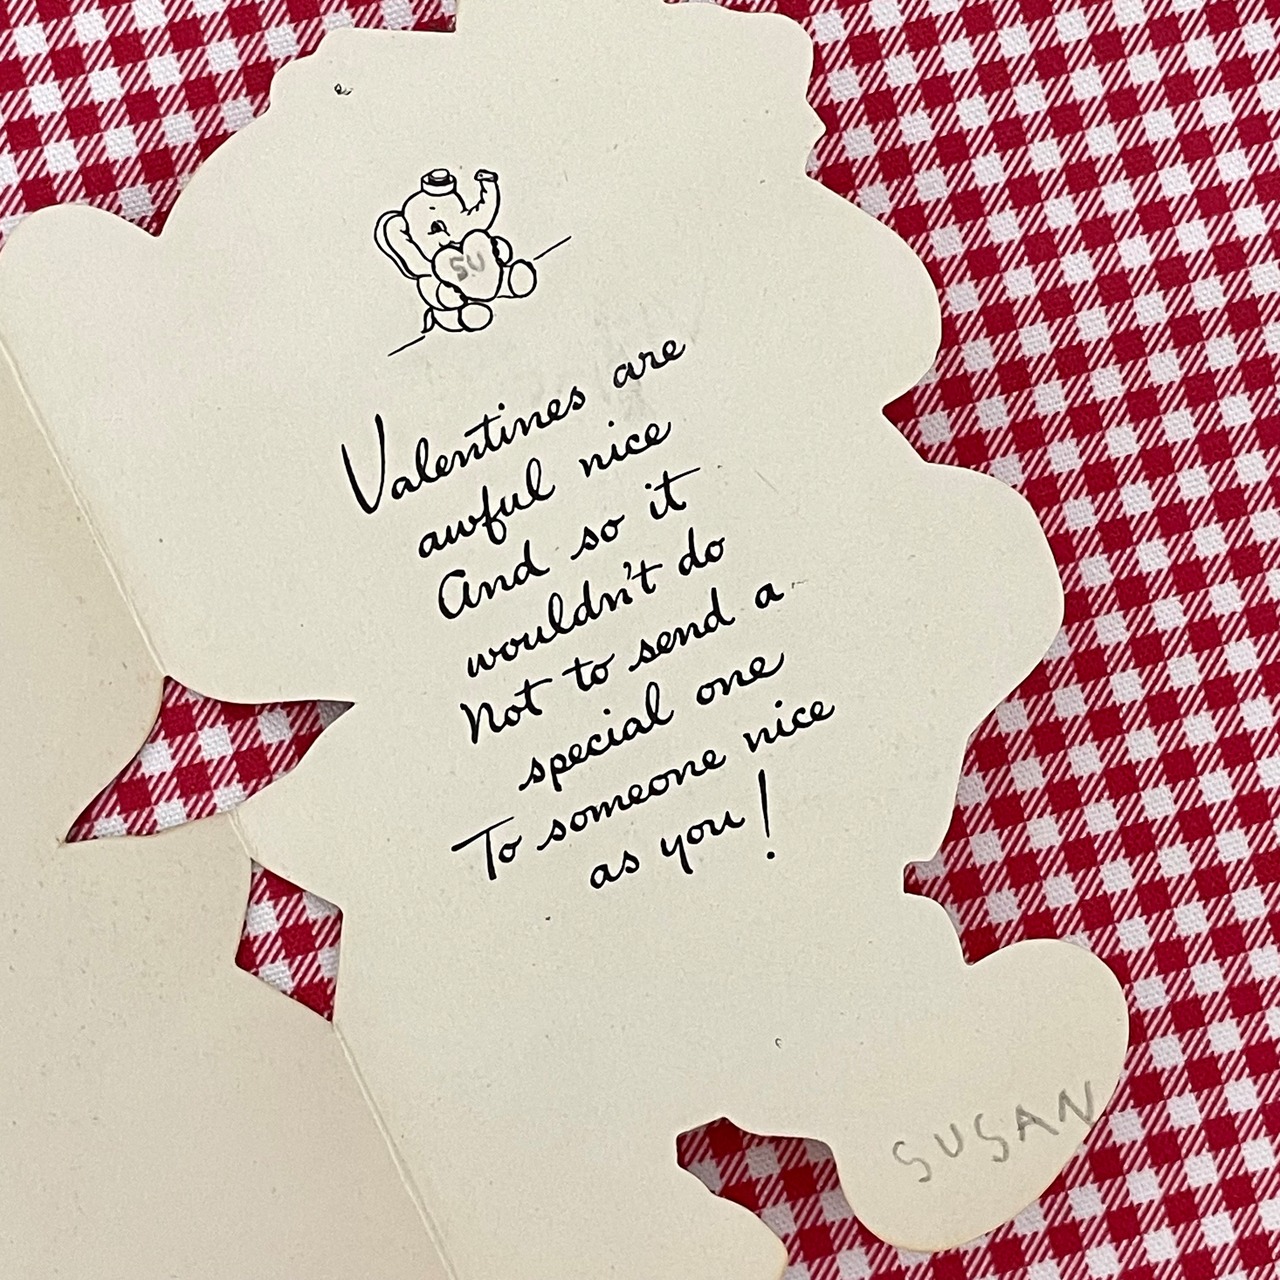 SU
Valentines are
awful nice
And so it
wouldn't do
Not to send a
special one
To someone nice
as you!
SUSAN